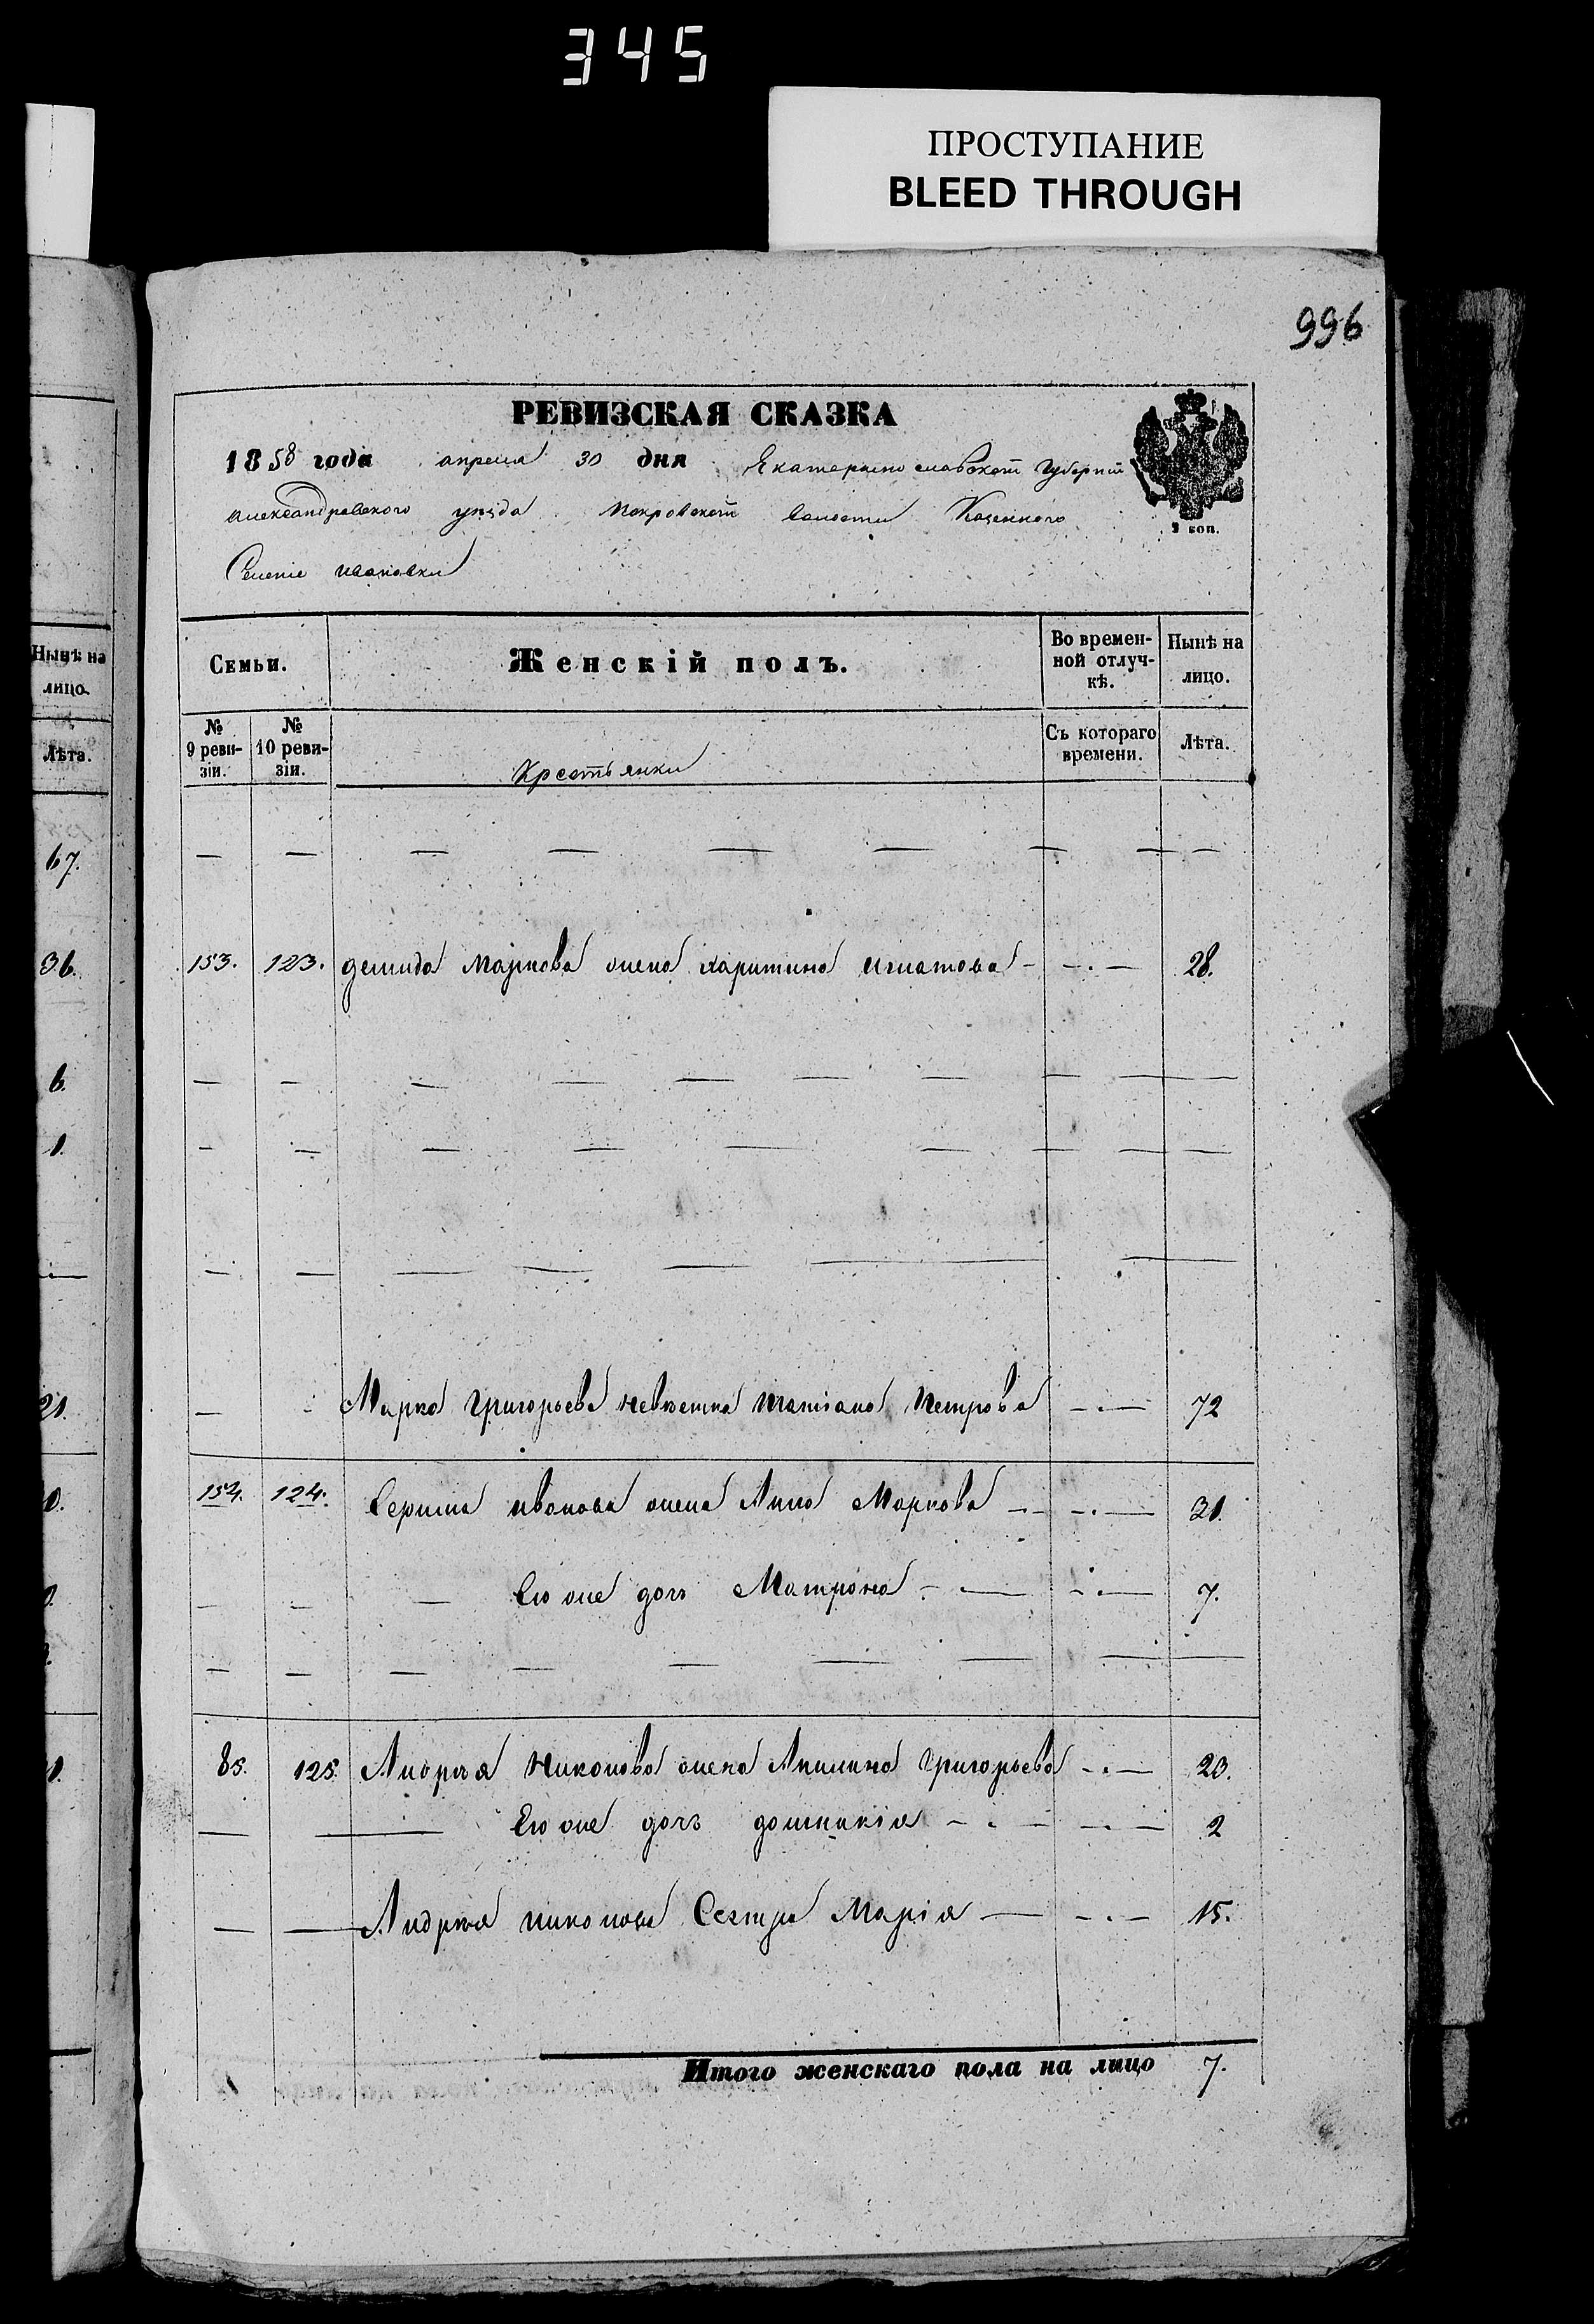 345
ПРОСТУПАНИЕ
BLEED THROUGH
996
РЕВИЗСКАЯ СКАЗКА
1858 года апреля 30 дня Екатеринославской Губерніи
Александровского уѣзда Покровской Волости Казенного
Селеніе Ивановки
3 коп.
Семьи.
Женскій полъ.
Во времен-
ной отлуч-
кѣ.
Нынѣ на
лицо.
№
9 реви-
зіи.
№
10 реви-
зіи.
Крестьянки
Съ котораго
времени.
Лѣта.
153. 123. демида Маркова жена харитина игнатова 28.
Марка Григорьева невѣстка татіана Петрова 72
154. 124. Сергея иванова жена Анна Маркова 31.
Его же дочь Матрона 7.
85. 125. Андрея Никонова жена Акилина Григорьева 23.
Его же дочь домникія 2
Андрея никонова Сестра Марія 15.
Итого женскаго пола на лицо 7.
Нынѣ на
лицо.
Лѣта.
67.
36.
6.
1.
21.